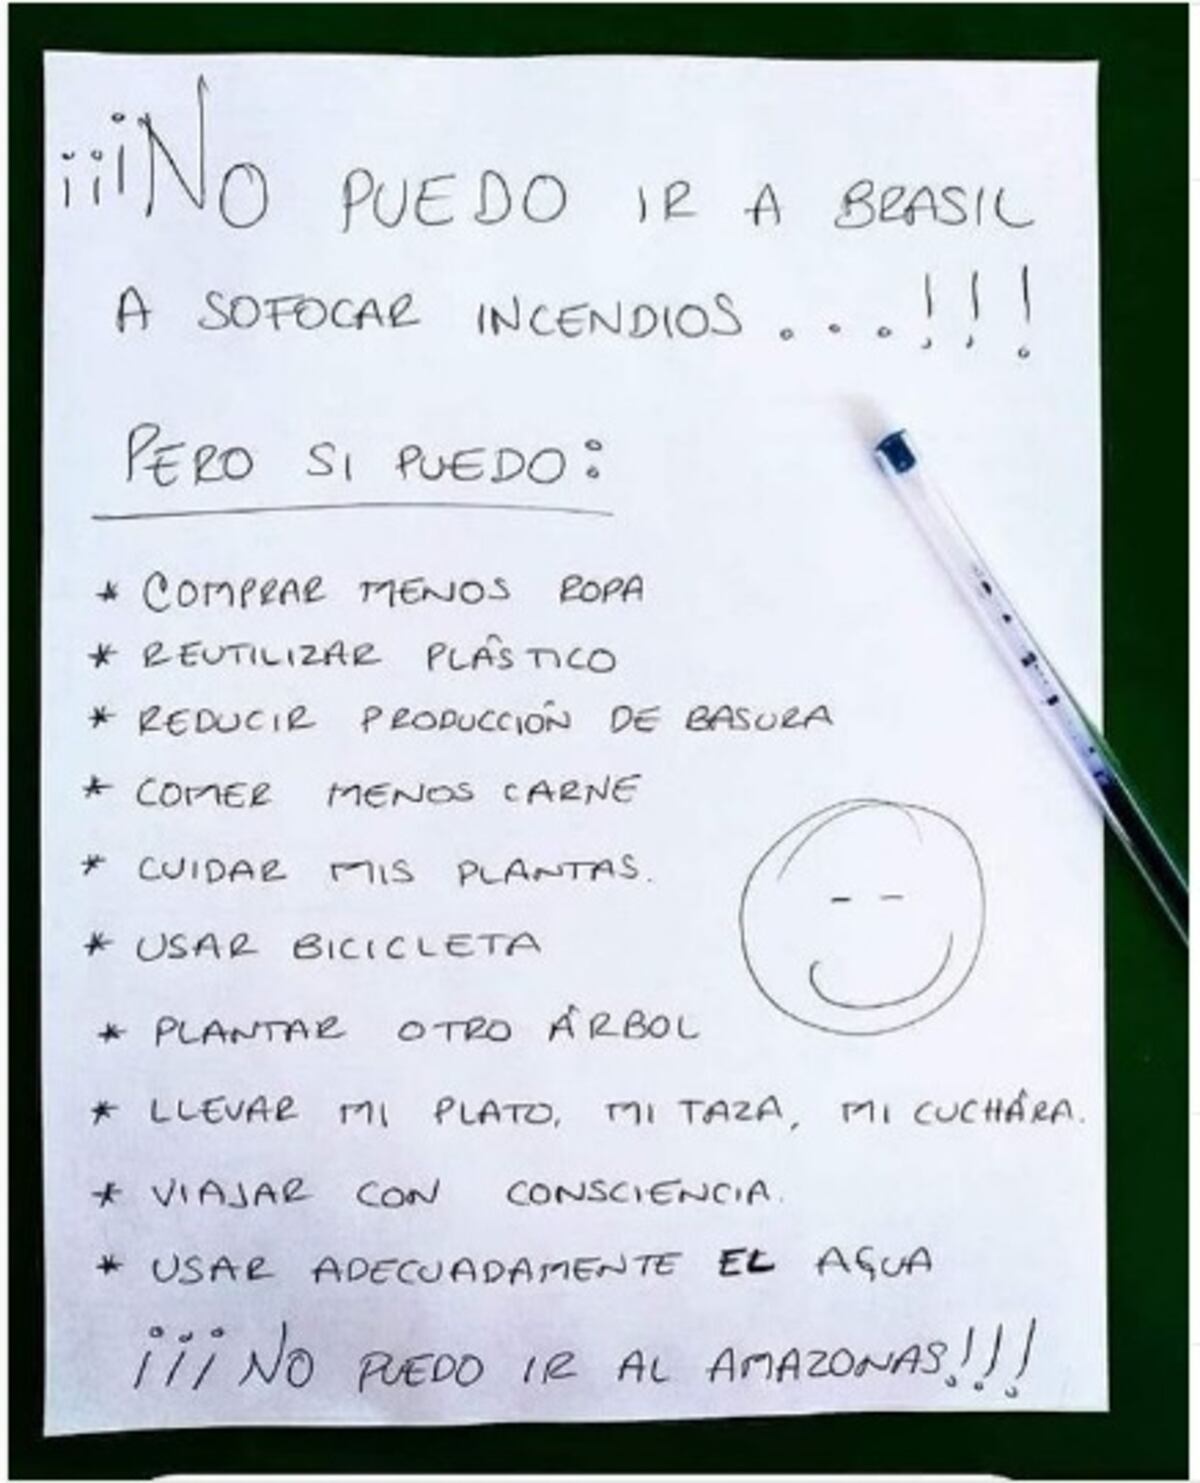 ¡¡¡NO PUEDO IR A BRASIL
A SOFOCAR INCENDIOS...!!!
PERO SI PUEDO:
* COMPRAR MENOS ROPA
* REUTILIZAR PLÁSTICO
* REDUCIR PRODUCCIÓN DE BASURA
* COMER MENOS CARNE
* CUIDAR MIS PLANTAS.
* USAR BICICLETA
* PLANTAR OTRO ÁRBOL
* LLEVAR MI PLATO, MI TAZA, MI CUCHÁRA.
* VIAJAR CON CONSCIENCIA.
* USAR ADECUADAMENTE EL AGUA
¡¡¡NO PUEDO IR AL AMAZONAS!!!